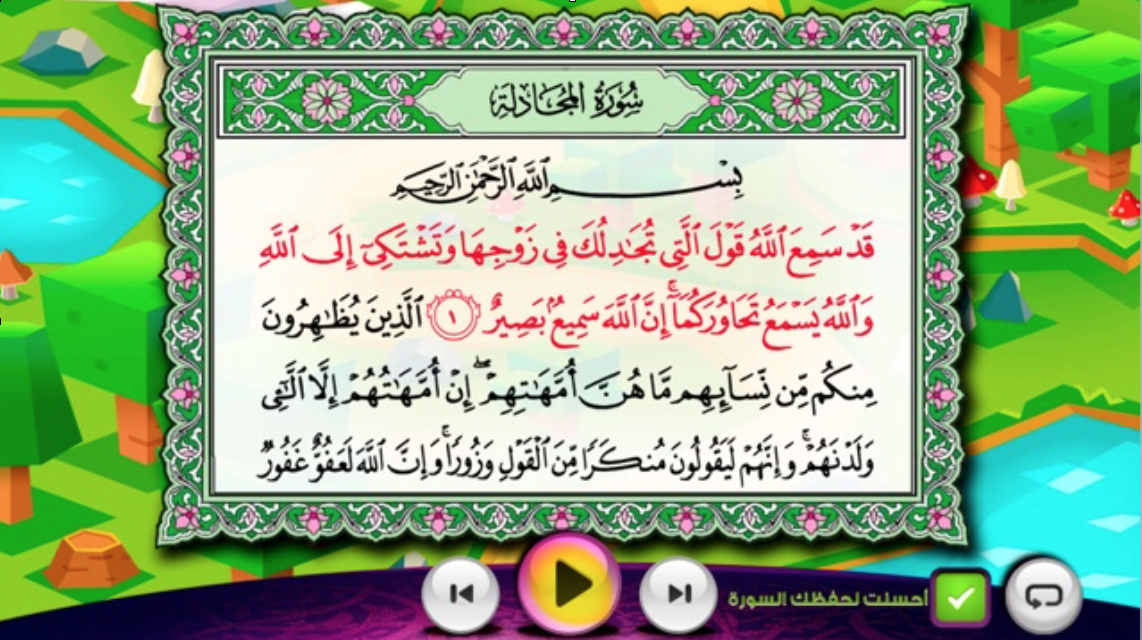 سُورَةُ المُجَادلَة
بِسْمِ اللَّهِ الرَّحْمَٰنِ الرَّحِيمِ
قَدْ سَمِعَ اللَّهُ قَوْلَ الَّتِي تُجَادِلُكَ فِي زَوْجِهَا وَتَشْتَكِيٓ إِلَى اللَّهِ
وَاللَّهُ يَسْمَعُ تَحَاوُرَكُمَآ ۚ إِنَّ اللَّهَ سَمِيعٌۢ بَصِيرٌ ١ الَّذِينَ يُظَٰهِرُونَ
مِنكُم مِّن نِّسَآئِهِم مَّا هُنَّ أُمَّهَٰتِهِمْ ۖ إِنْ أُمَّهَٰتُهُمْ إِلَّا الَّٰٓـِٔي
وَلَدْنَهُمْ ۚ وَإِنَّهُمْ لَيَقُولُونَ مُنكَرًا مِّنَ الْقَوْلِ وَزُورًا ۚ وَإِنَّ اللَّهَ لَعَفُوٌّ غَفُورٌ
أحسنت لحفظك السورة